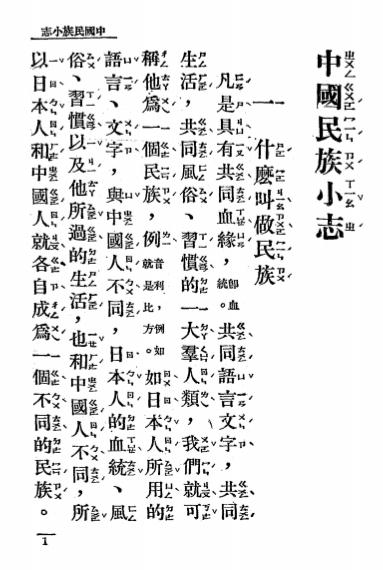 中國民族小志
中國民族小志
一 什麼叫做民族
凡是具有共同血緣，卽血統。共同語言文字，共同
生活，共同風俗、習慣的一大羣人類，我們就可
稱他爲一個民族，例音利，例如就是比方。如日本人所用的
語言、文字，與中國人不同，日本人的血統、風
俗、習慣以及他所過的生活，也和中國人不同，所
以日本人和中國人就各自成爲一個不同的民族。
1